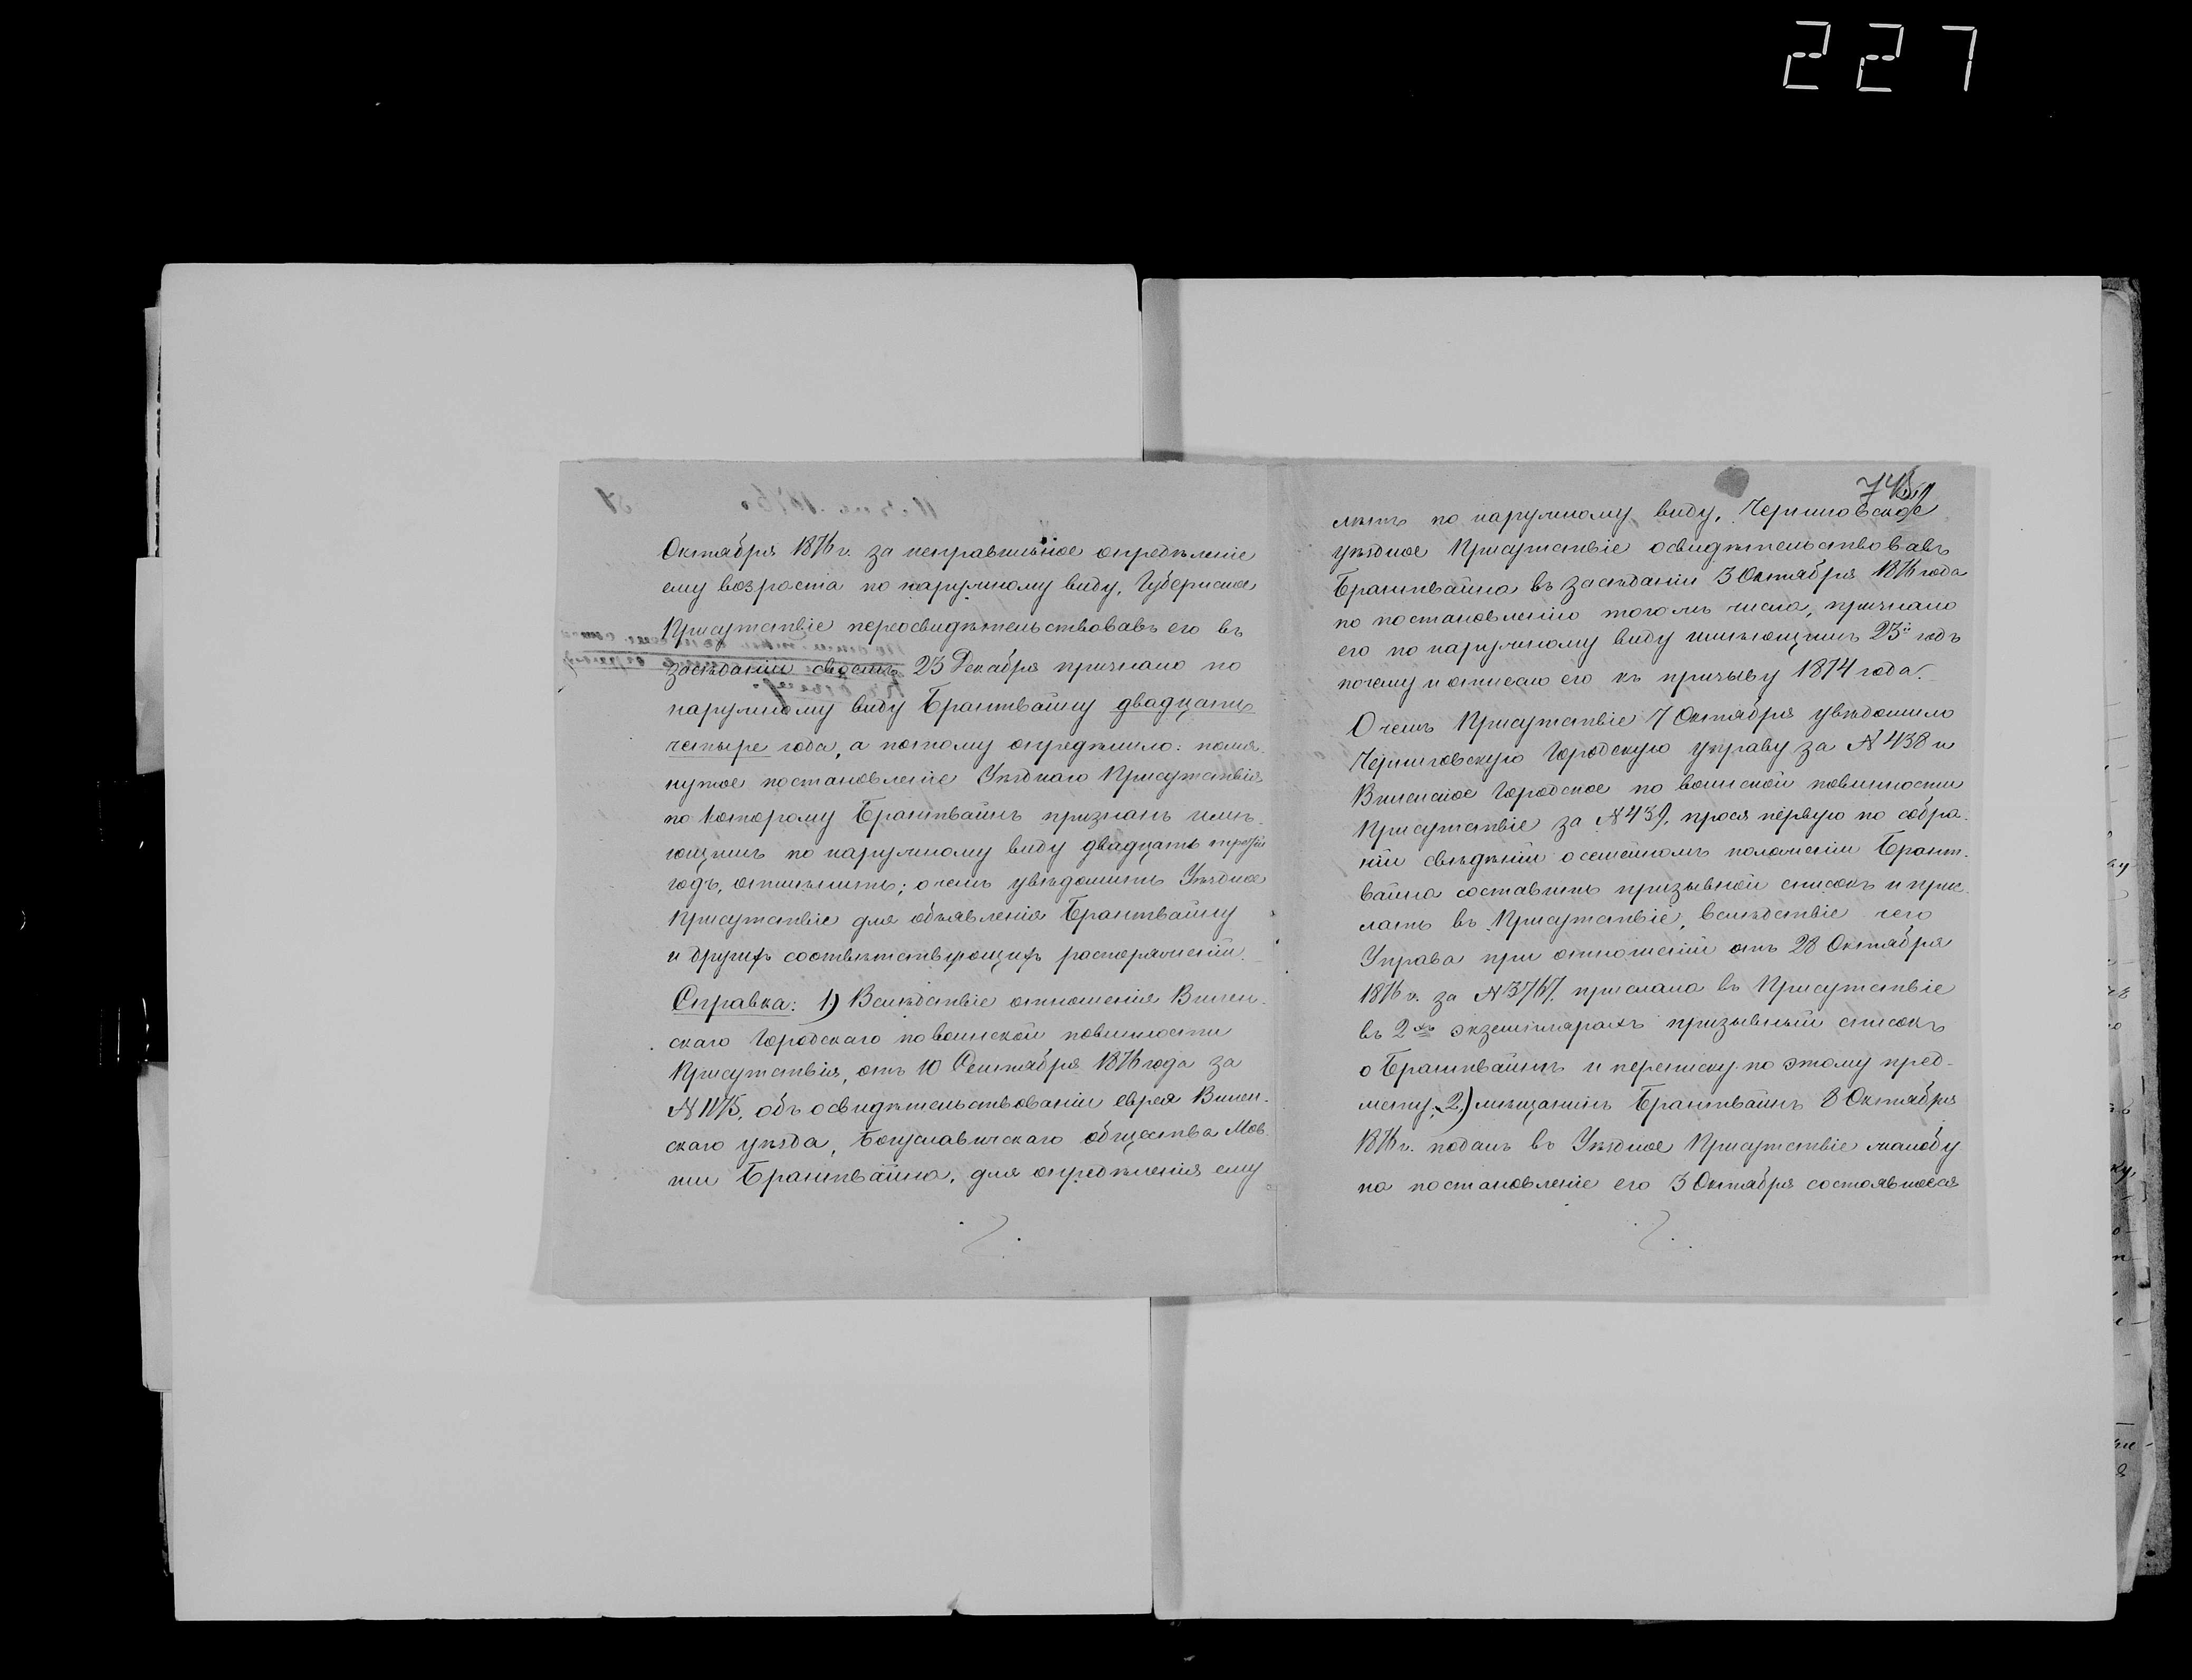 227
Октября 1876 г. за неправильное опредѣленіе
ему возраста по наружному виду, Губернское
Присутствіе переосвидѣтельствовавъ его въ
засѣданіи своемъ 23 Декабря признало по
наружному виду Брантвайну двадцать
четыре года, а потому опредѣлило: помя-
нутое постановленіе Уѣзднаго Присутствія
по которому Брантвайнъ признанъ имѣ-
ющимъ по наружному виду двадцать третій
годъ, отмѣнить; о чемъ увѣдомить Уѣздное
Присутствіе для объявленія Брантвайну
и другихъ соотвѣтствующихъ распоряженій.
Справка: 1) Вслѣдствіе отношенія Вилен-
скаго Городскаго по воинской повинности
Присутствія, отъ 10 Сентября 1876 года за
№ 1175, объ освидѣтельствованіи еврея Вилен-
скаго уѣзда, Богуславишскаго общества Мов-
ши Брантвайна, для опредѣленія ему
лѣтъ по наружному виду, Черниговское
уѣздное Присутствіе освидѣтельствовавъ
Брантвайна въ засѣданіи 3 Октября 1876 года
по постановленію того-жъ числа, признало
его по наружному виду имѣющимъ 23й годъ
почему и отнесло его къ призыву 1874 года.
О чемъ Присутствіе 7 Октября увѣдомило
Черниговскую Городскую управу за № 438 и
Виленское Городское по воинской повинности
Присутствіе за № 439, прося первую по собра-
ніи свѣдѣній о семейномъ положеніи Брант-
вайна составить призывной списокъ и прис-
лать въ Присутствіе, вслѣдствіе чего
Управа при отношеніи отъ 28 Октября
1876 г. за № 3767, прислала въ Присутствіе
въ 2хъ экземплярахъ призывный списокъ
о Брантвайнѣ и переписку по этому пред-
мету. 2) мѣщанинъ Брантвайнъ 8 Октября
1876 г. подалъ въ Уѣздное Присутствіе жалобу
на постановленіе его 3 Октября состоявшееся